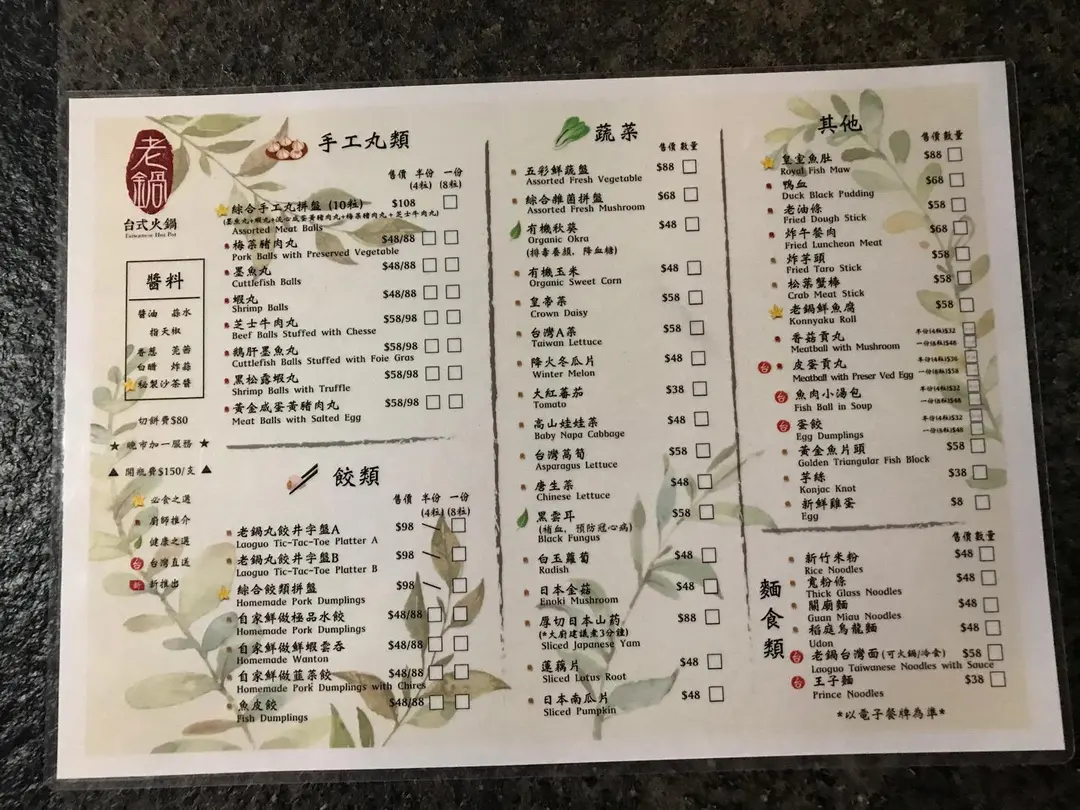 老鍋
台式火鍋
Taiwanese Hot Pot
醬料
醬油 蒜水
指天椒
香蔥 芫茜
白醋 炸蒜
秘製沙茶醬
切餅費$80
★ 晚市加一服務 ★
▲ 開瓶費$150/支 ▲
必食之選
廚師推介
健康之選
台 台灣直送
新 新推出
手工丸類
售價 半份 一份
(4粒) (8粒)
綜合手工丸拼盤 (10粒) $108
(墨魚丸+蝦丸+流心咸蛋黃豬肉丸+梅菜豬肉丸+芝士牛肉丸)
Assorted Meat Balls
梅菜豬肉丸 $48/88
Pork Balls with Preserved Vegetable
墨魚丸 $48/88
Cuttlefish Balls
蝦丸 $48/88
Shrimp Balls
芝士牛肉丸 $58/98
Beef Balls Stuffed with Chesse
鵝肝墨魚丸 $58/98
Cuttlefish Balls Stuffed with Foie Gras
黑松露蝦丸 $58/98
Shrimp Balls with Truffle
黃金咸蛋黃豬肉丸 $58/98
Meat Balls with Salted Egg
餃類
售價 半份 一份
(4粒) (8粒)
老鍋丸餃井字盤A $98
Laoguo Tic-Tac-Toe Platter A
老鍋丸餃井字盤B $98
Laoguo Tic-Tac-Toe Platter B
綜合餃類拼盤 $98
Homemade Pork Dumplings
自家鮮做極品水餃 $48/88
Homemade Pork Dumplings
自家鮮做鮮蝦雲吞 $48/88
Homemade Wanton
自家鮮做韮菜餃 $48/88
Homemade Pork Dumplings with Chires
魚皮餃 $48/88
Fish Dumplings
蔬菜
售價 數量
五彩鮮蔬盤 $88
Assorted Fresh Vegetable
綜合雜菌拼盤 $68
Assorted Fresh Mushroom
有機秋葵 $48
Organic Okra
(排毒養顏, 降血糖)
有機玉米 $48
Organic Sweet Corn
皇帝菜 $58
Crown Daisy
台灣A菜 $58
Taiwan Lettuce
降火冬瓜片 $48
Winter Melon
大紅番茄 $38
Tomato
高山娃娃菜 $48
Baby Napa Cabbage
台灣萵筍 $58
Asparagus Lettuce
唐生菜 $48
Chinese Lettuce
黑雲耳 $58
(補血, 預防冠心病)
Black Fungus
白玉蘿蔔 $48
Radish
日本金菇 $48
Enoki Mushroom
厚切日本山药 $88
(*大廚建議煮3分鐘)
Sliced Japanese Yam
蓮藕片 $48
Sliced Lotus Root
日本南瓜片 $48
Sliced Pumpkin
其他
售價 數量
皇室魚肚 $88
Royal Fish Maw
鴨血 $68
Duck Black Pudding
老油條 $58
Fried Dough Stick
炸午餐肉 $68
Fried Luncheon Meat
炸芋頭 $58
Fried Taro Stick
松葉蟹棒 $58
Crab Meat Stick
老鍋鮮魚腐 $58
Konnyaku Roll
香菇貢丸 半份(4粒)$32
Meatball with Mushroom 一份(8粒)$48
台 皮蛋貢丸 半份(4粒)$36
Meatball with Preser Ved Egg 一份(8粒)$58
台 魚肉小湯包 半份(4粒)$32
Fish Ball in Soup 一份(8粒)$48
台 蛋餃 半份(4粒)$32
Egg Dumplings 一份(8粒)$48
黃金魚片頭 $58
Golden Triangular Fish Block
芋絲 $38
Konjac Knot
新鮮雞蛋 $8
Egg
麵食類
售價 數量
新竹米粉 $48
Rice Noodles
寬粉條 $48
Thick Glass Noodles
關廟麵 $48
Guan Miau Noodles
稻庭烏龍麵 $48
Udon
台 老鍋台灣面(可火鍋/冷食) $58
Laoguo Taiwanese Noodles with Sauce
台 王子麵 $38
Prince Noodles
*以電子餐牌為準*